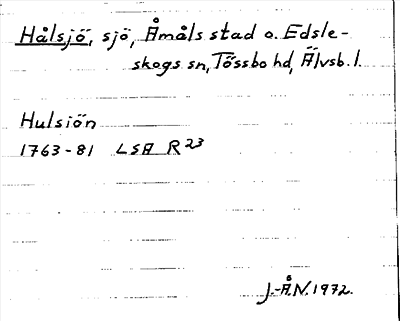 Hålsjö, sjö, Åmåls stad o. Edsle-
skogs sn, Tössbo hd, Älvsb. l.
Hulsiön
1763-81 LSA R 23
J.-Å.N. 1972.